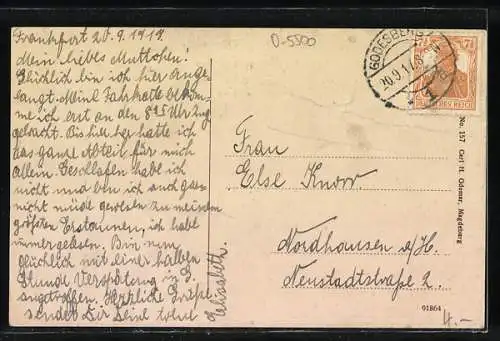 Frankfurt 20.9.1917
Mein liebes Muttchen!
Glücklich bin ich hier ange-
langt. Meine Fahrkarte bekom-
me ich erst an den 8 Uhr Zug
gedacht. Bis hierher hatte ich
das ganze Abteil für mich
allein. Geschlafen habe ich
nicht und bin ich auch gar
nicht müde gewesen zu meinem
größten Erstaunen, ich habe
immer gelesen. Bin nun
glücklich mit einer halben
Stunde Verspätung in G.
angetroffen. Herzliche Grüße
sendet Dir Deine treue
D-5300
GODESBERG
20.9.17
7½ 7½
DEUTSCHES REICH
Frau
Else Knorr
Nordhausen a/H.
Neustadtstraße 2.
No. 157 Carl H. Odemar, Magdeburg
91864
4.-